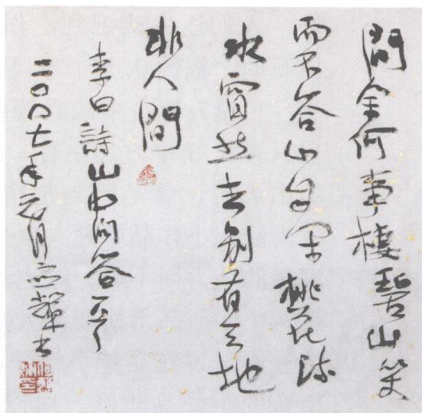 問余何事棲碧山笑
而不答心自閑桃花流
水窅然去別有天地
非人間
李白詩山中問答一首
二〇〇七年元月